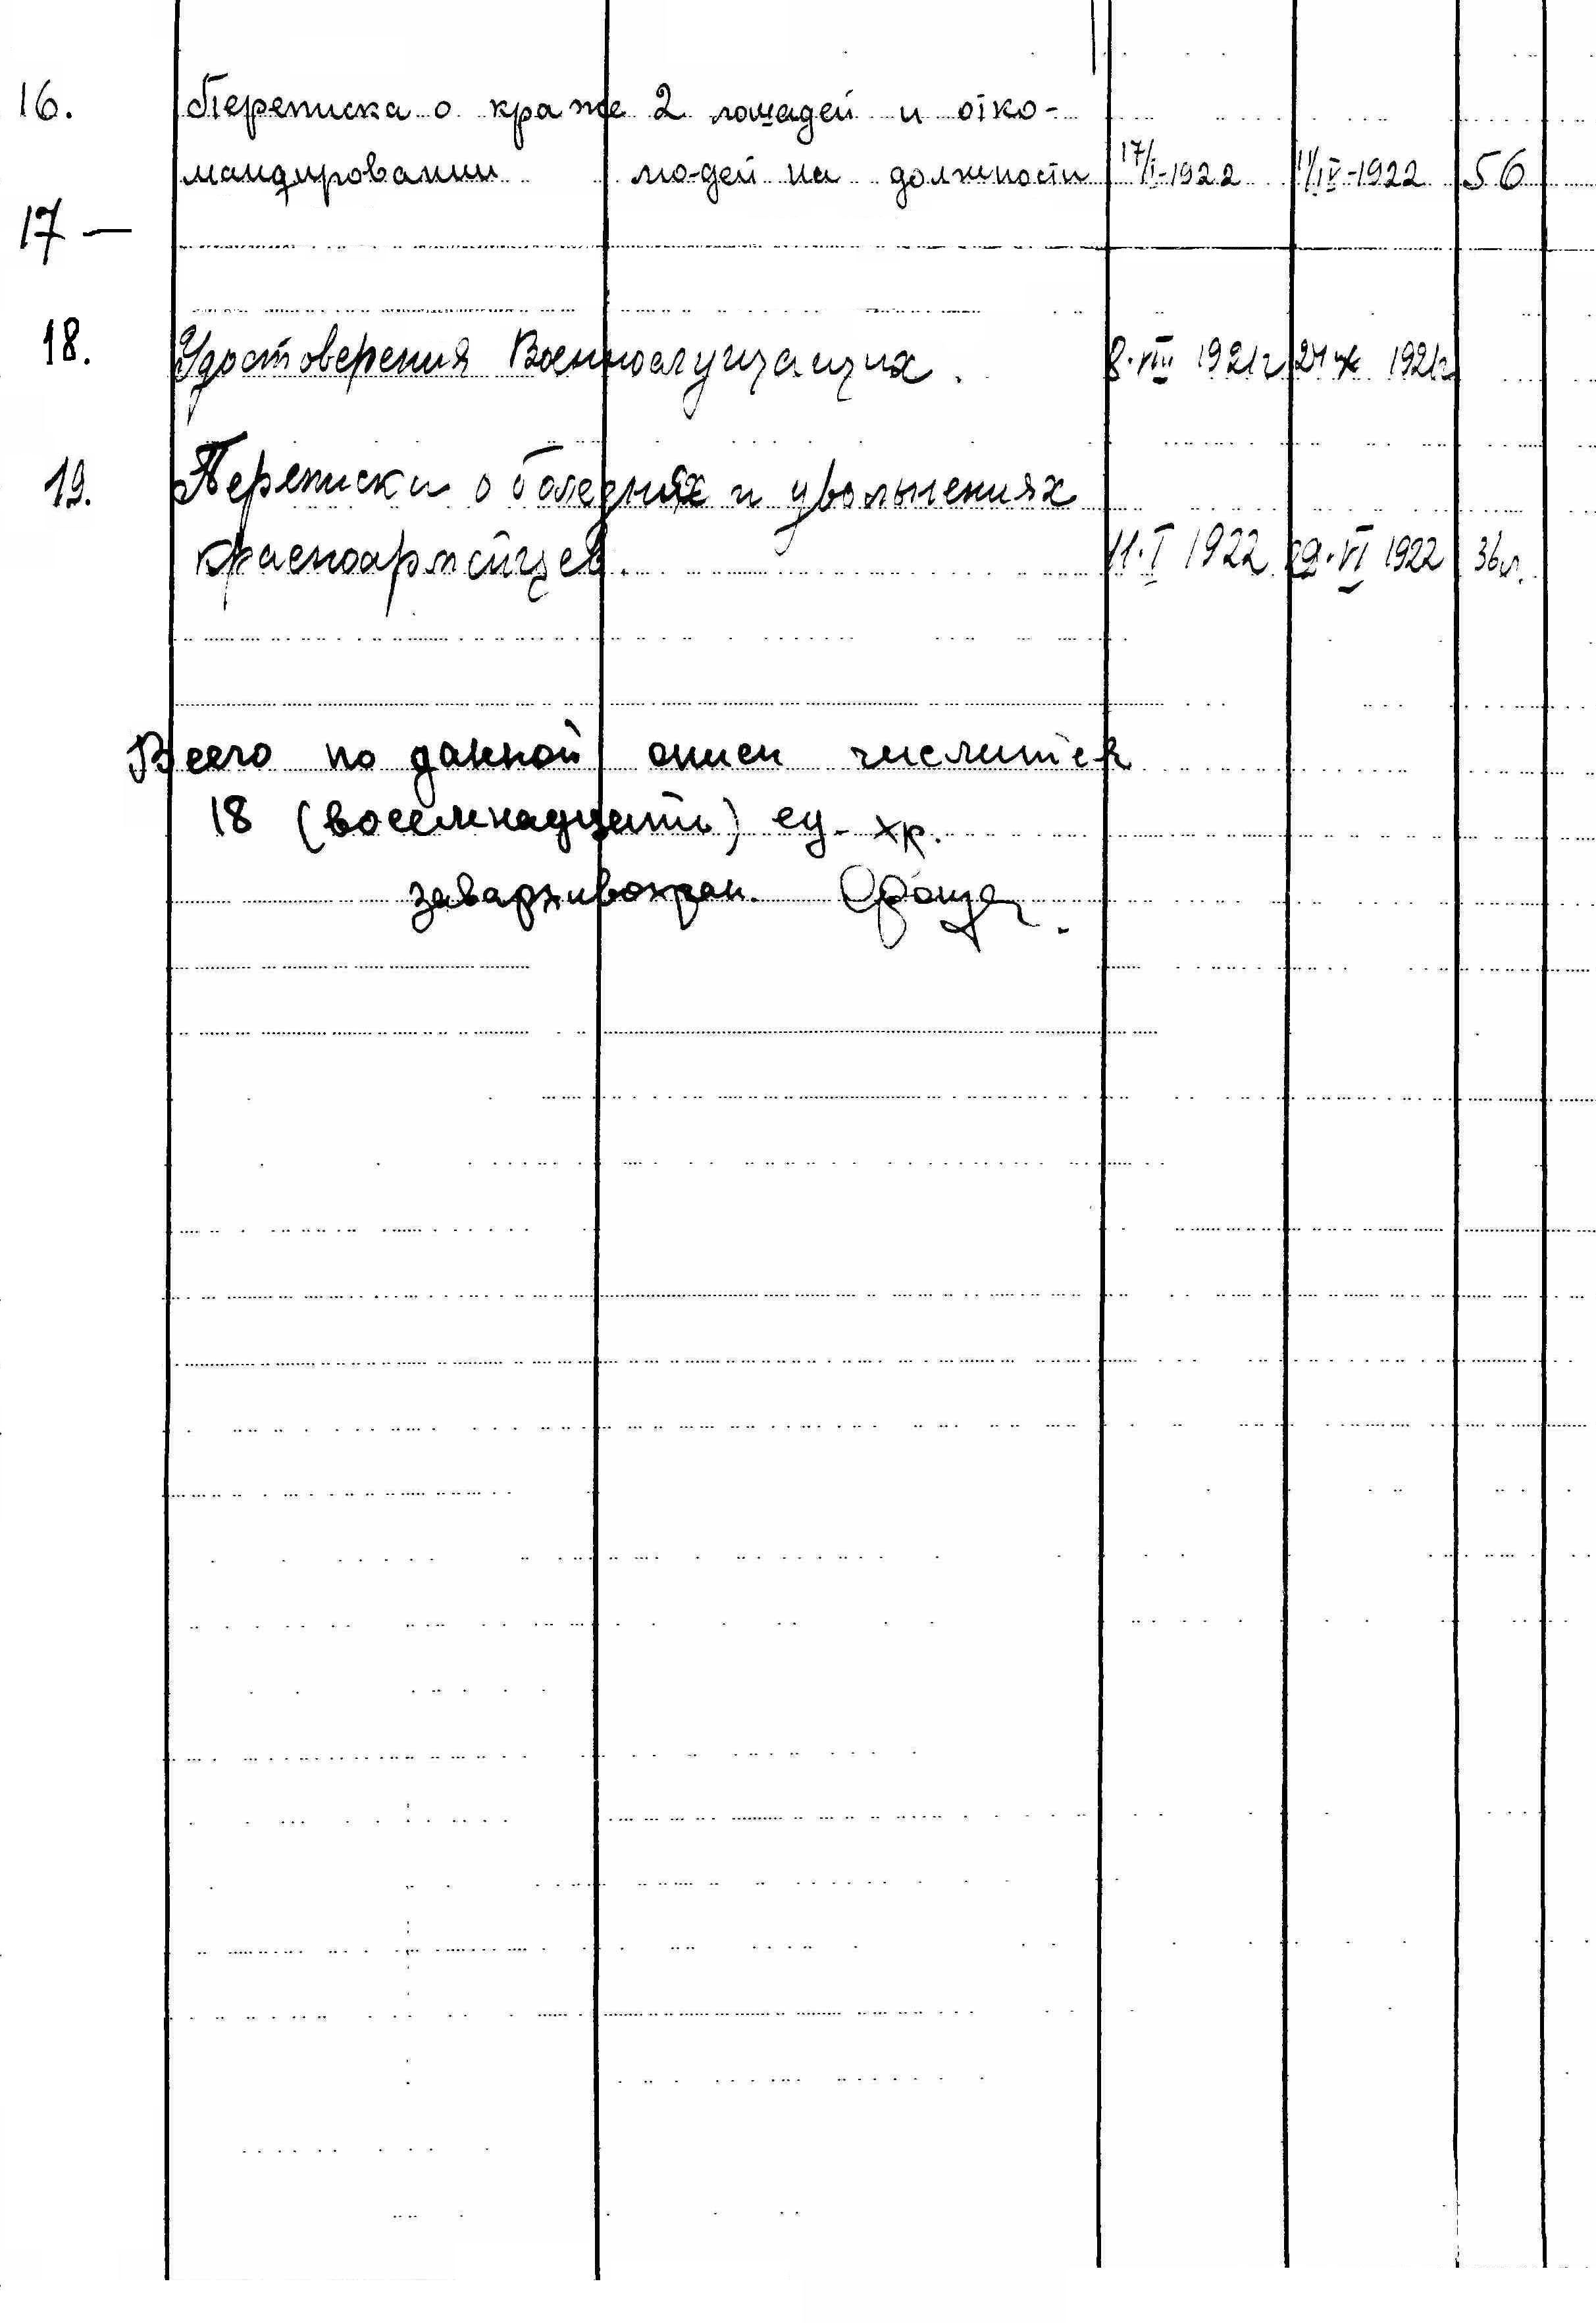 16. Переписка о краже 2 лошадей и отко-
мандировании людей на должности 17/I-1922 11/IV-1922 56
17 —
18. Удостоверения Военнослужащих. 8.VIII 1921г 1921г
19. Переписки о болезнях и увольнениях
красноармейцев. 11.I 1922 29.VI 1922 36л.
Всего по данной описи числится
18 (восемнадцать) ед. хр.
завархивохран.